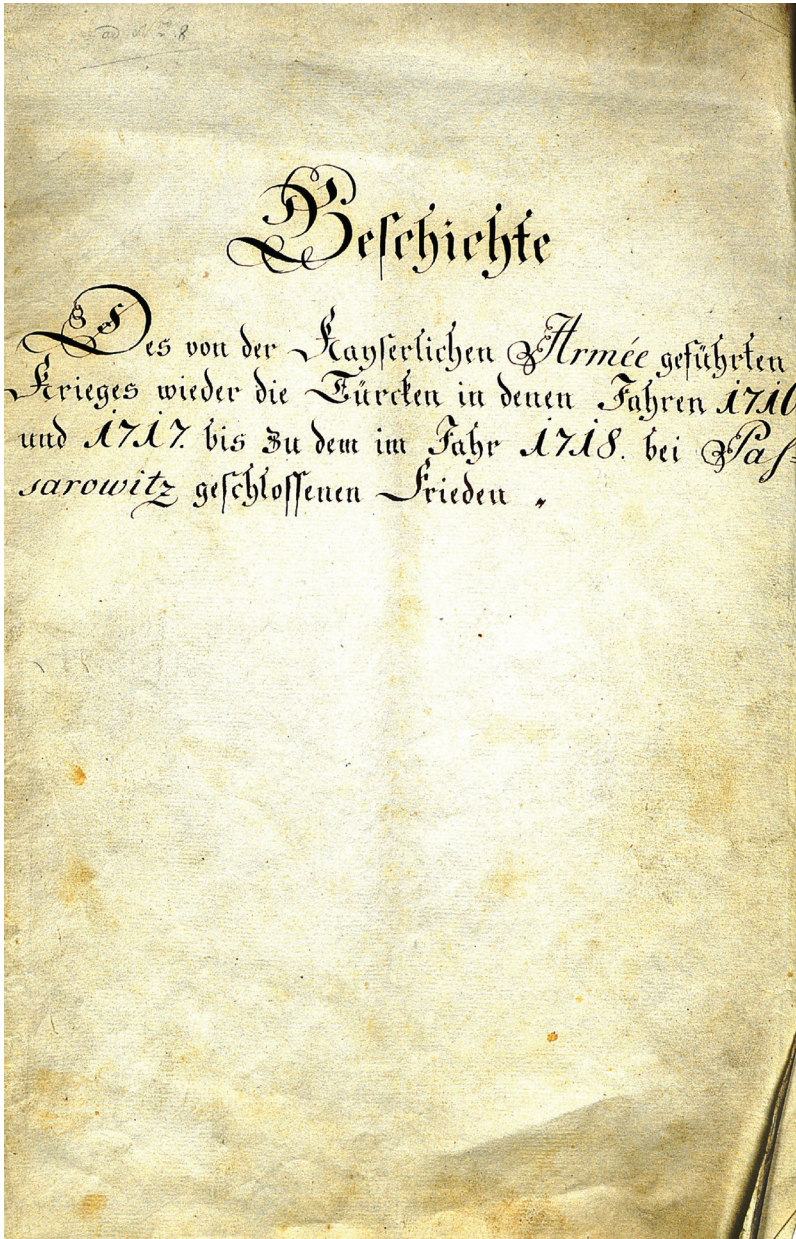 ad No 8
Geschichte
Des von der Kayserlichen Armée geführten
Krieges wieder die Türcken in denen Jahren 1716
und 1717. bis zu dem im Jahr 1718. bei Pas-
sarowitz geschlossenen Frieden „